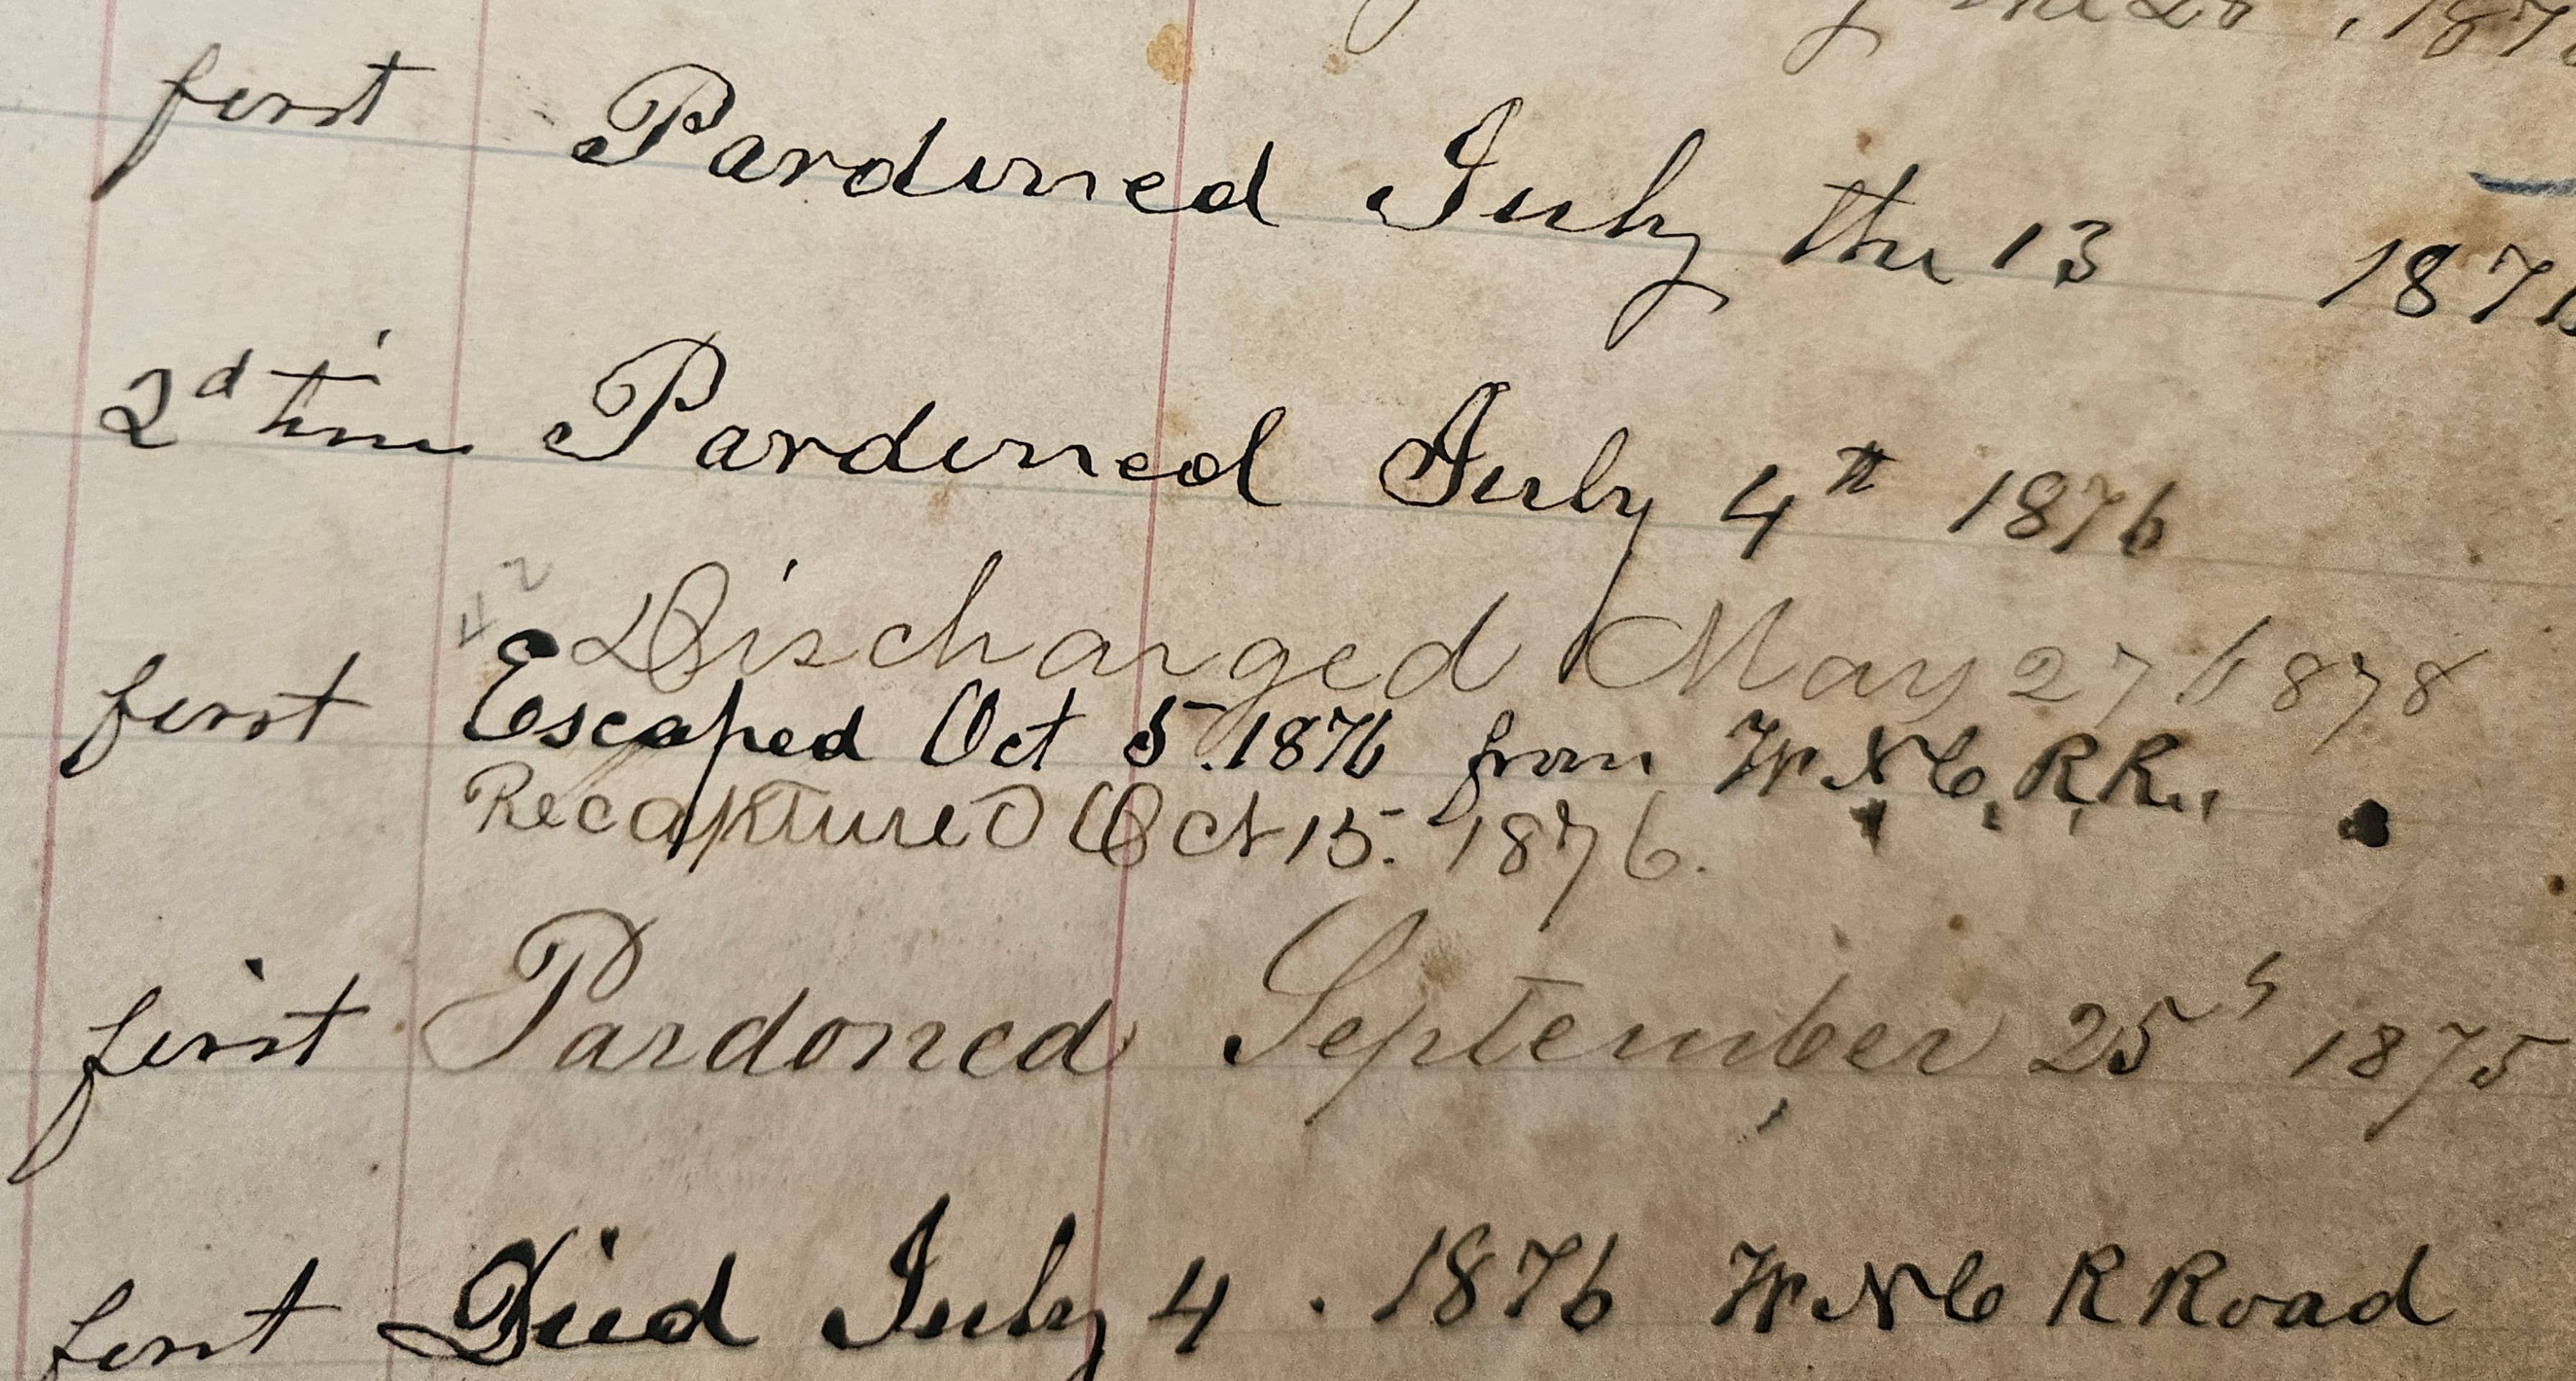 , 187
first Pardined July the 13 187
2d time Pardined July 4th 1876
42
Discharged May 27 1878
first Escaped Oct 5. 1876 from W. N. C. R. R.
Recaptured Oct 15. 1876.
first Pardoned September 25 1875
first Died July 4 . 1876 W N C R Road